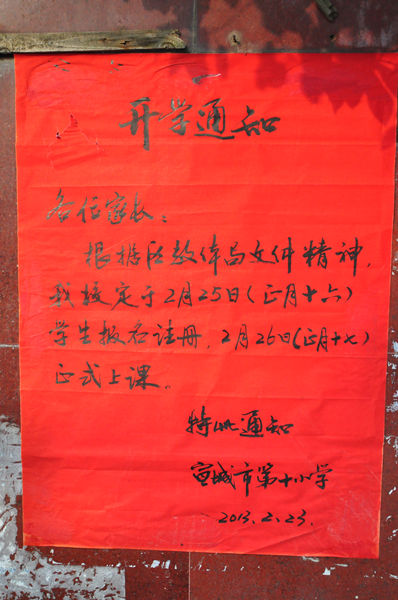 开学通知
各位家长：
根据区教体局文件精神，
我校定于2月25日（正月十六）
学生报名注册，2月26日（正月十七）
正式上课。
特此通知
宣城市第十小学
2013.2.23.